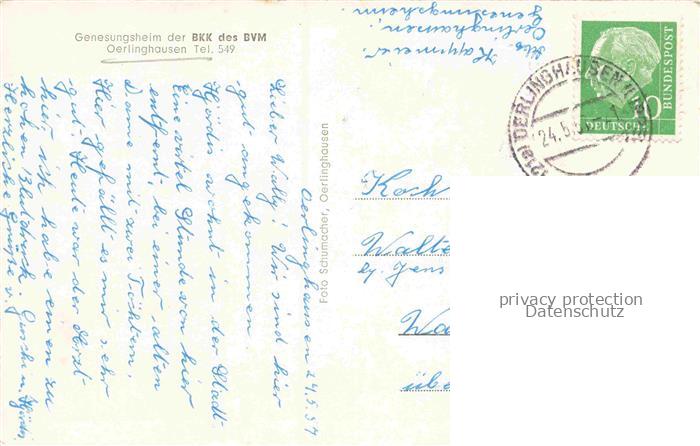 Genesungsheim der BKK des BVM
Oerlinghausen Tel. 549
Oerlinghausen 24.5.57
Lieber Wally! Wir sind hier
gut angekommen
Hjördis wohnt in der Stadt
Eine viertel Stunde von hier
entfernt, bei einer alten
Dame mit zwei Töchtern.
Hier gefällt es mir sehr
gut. Heute war der Arzt
hier ich habe einen zu
hohen Blutdruck.
Herzliche Grüße v.
Foto Schumacher, Oerlinghausen
Abs. Kappmeier
Oerlinghausen,
Genesungsheim.
DEUTSCHE BUNDESPOST
OERLINGHAUSEN
24.5.5
Koch
Walte
bj. Jens
Wa
übe
privacy protection
Datenschutz